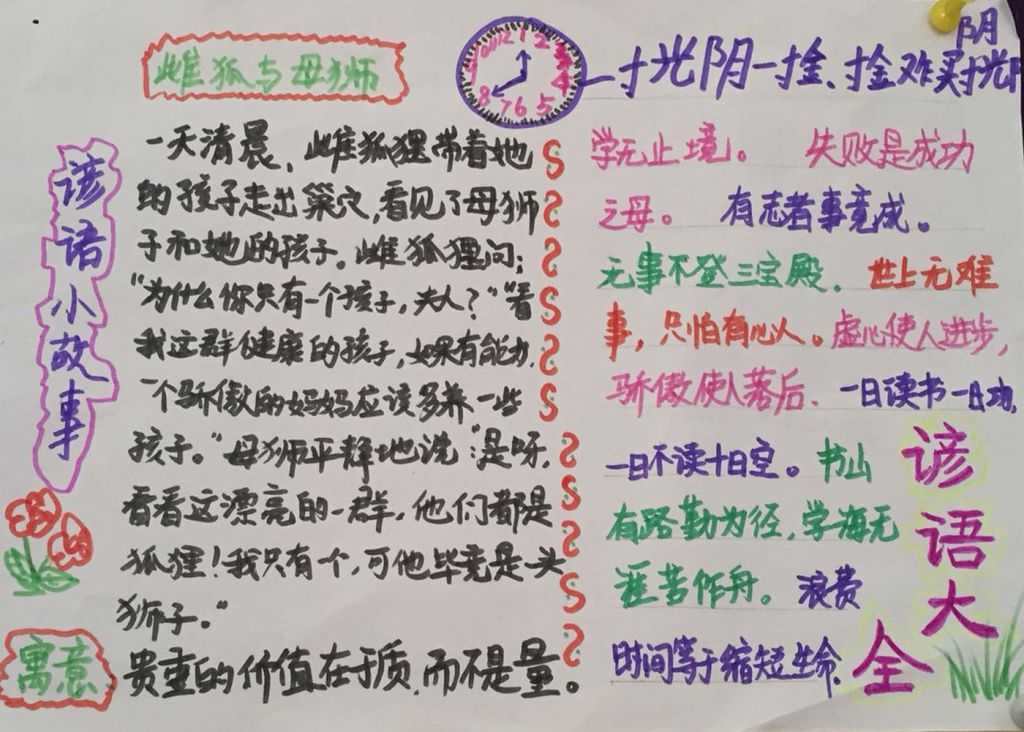 雌狐与母狮
谚语小故事
一天清晨，雌狐狸带着她
的孩子走出巢穴，看见了母狮
子和她的孩子。雌狐狸问：
"为什么你只有一个孩子，夫人？""看
我这群健康的孩子，如果有能力，
一个骄傲的妈妈应该多养一些
孩子。"母狮平静地说："是呀，
看看这漂亮的一群，他们都是
狐狸！我只有一个，可他毕竟是一头
狮子。"
寓意
贵重的价值在于质，而不是量。
12 1 2 3 4 5 6 7 8 9 10 11
一寸光阴一寸金、寸金难买寸光阴
学无止境。 失败是成功
之母。 有志者事竟成。
无事不登三宝殿． 世上无难
事，只怕有心人。虚心使人进步，
骄傲使人落后． 一日读书一日功，
一日不读十日空。书山
有路勤为径，学海无
涯苦作舟。 浪费
时间等于缩短生命．
谚语大全